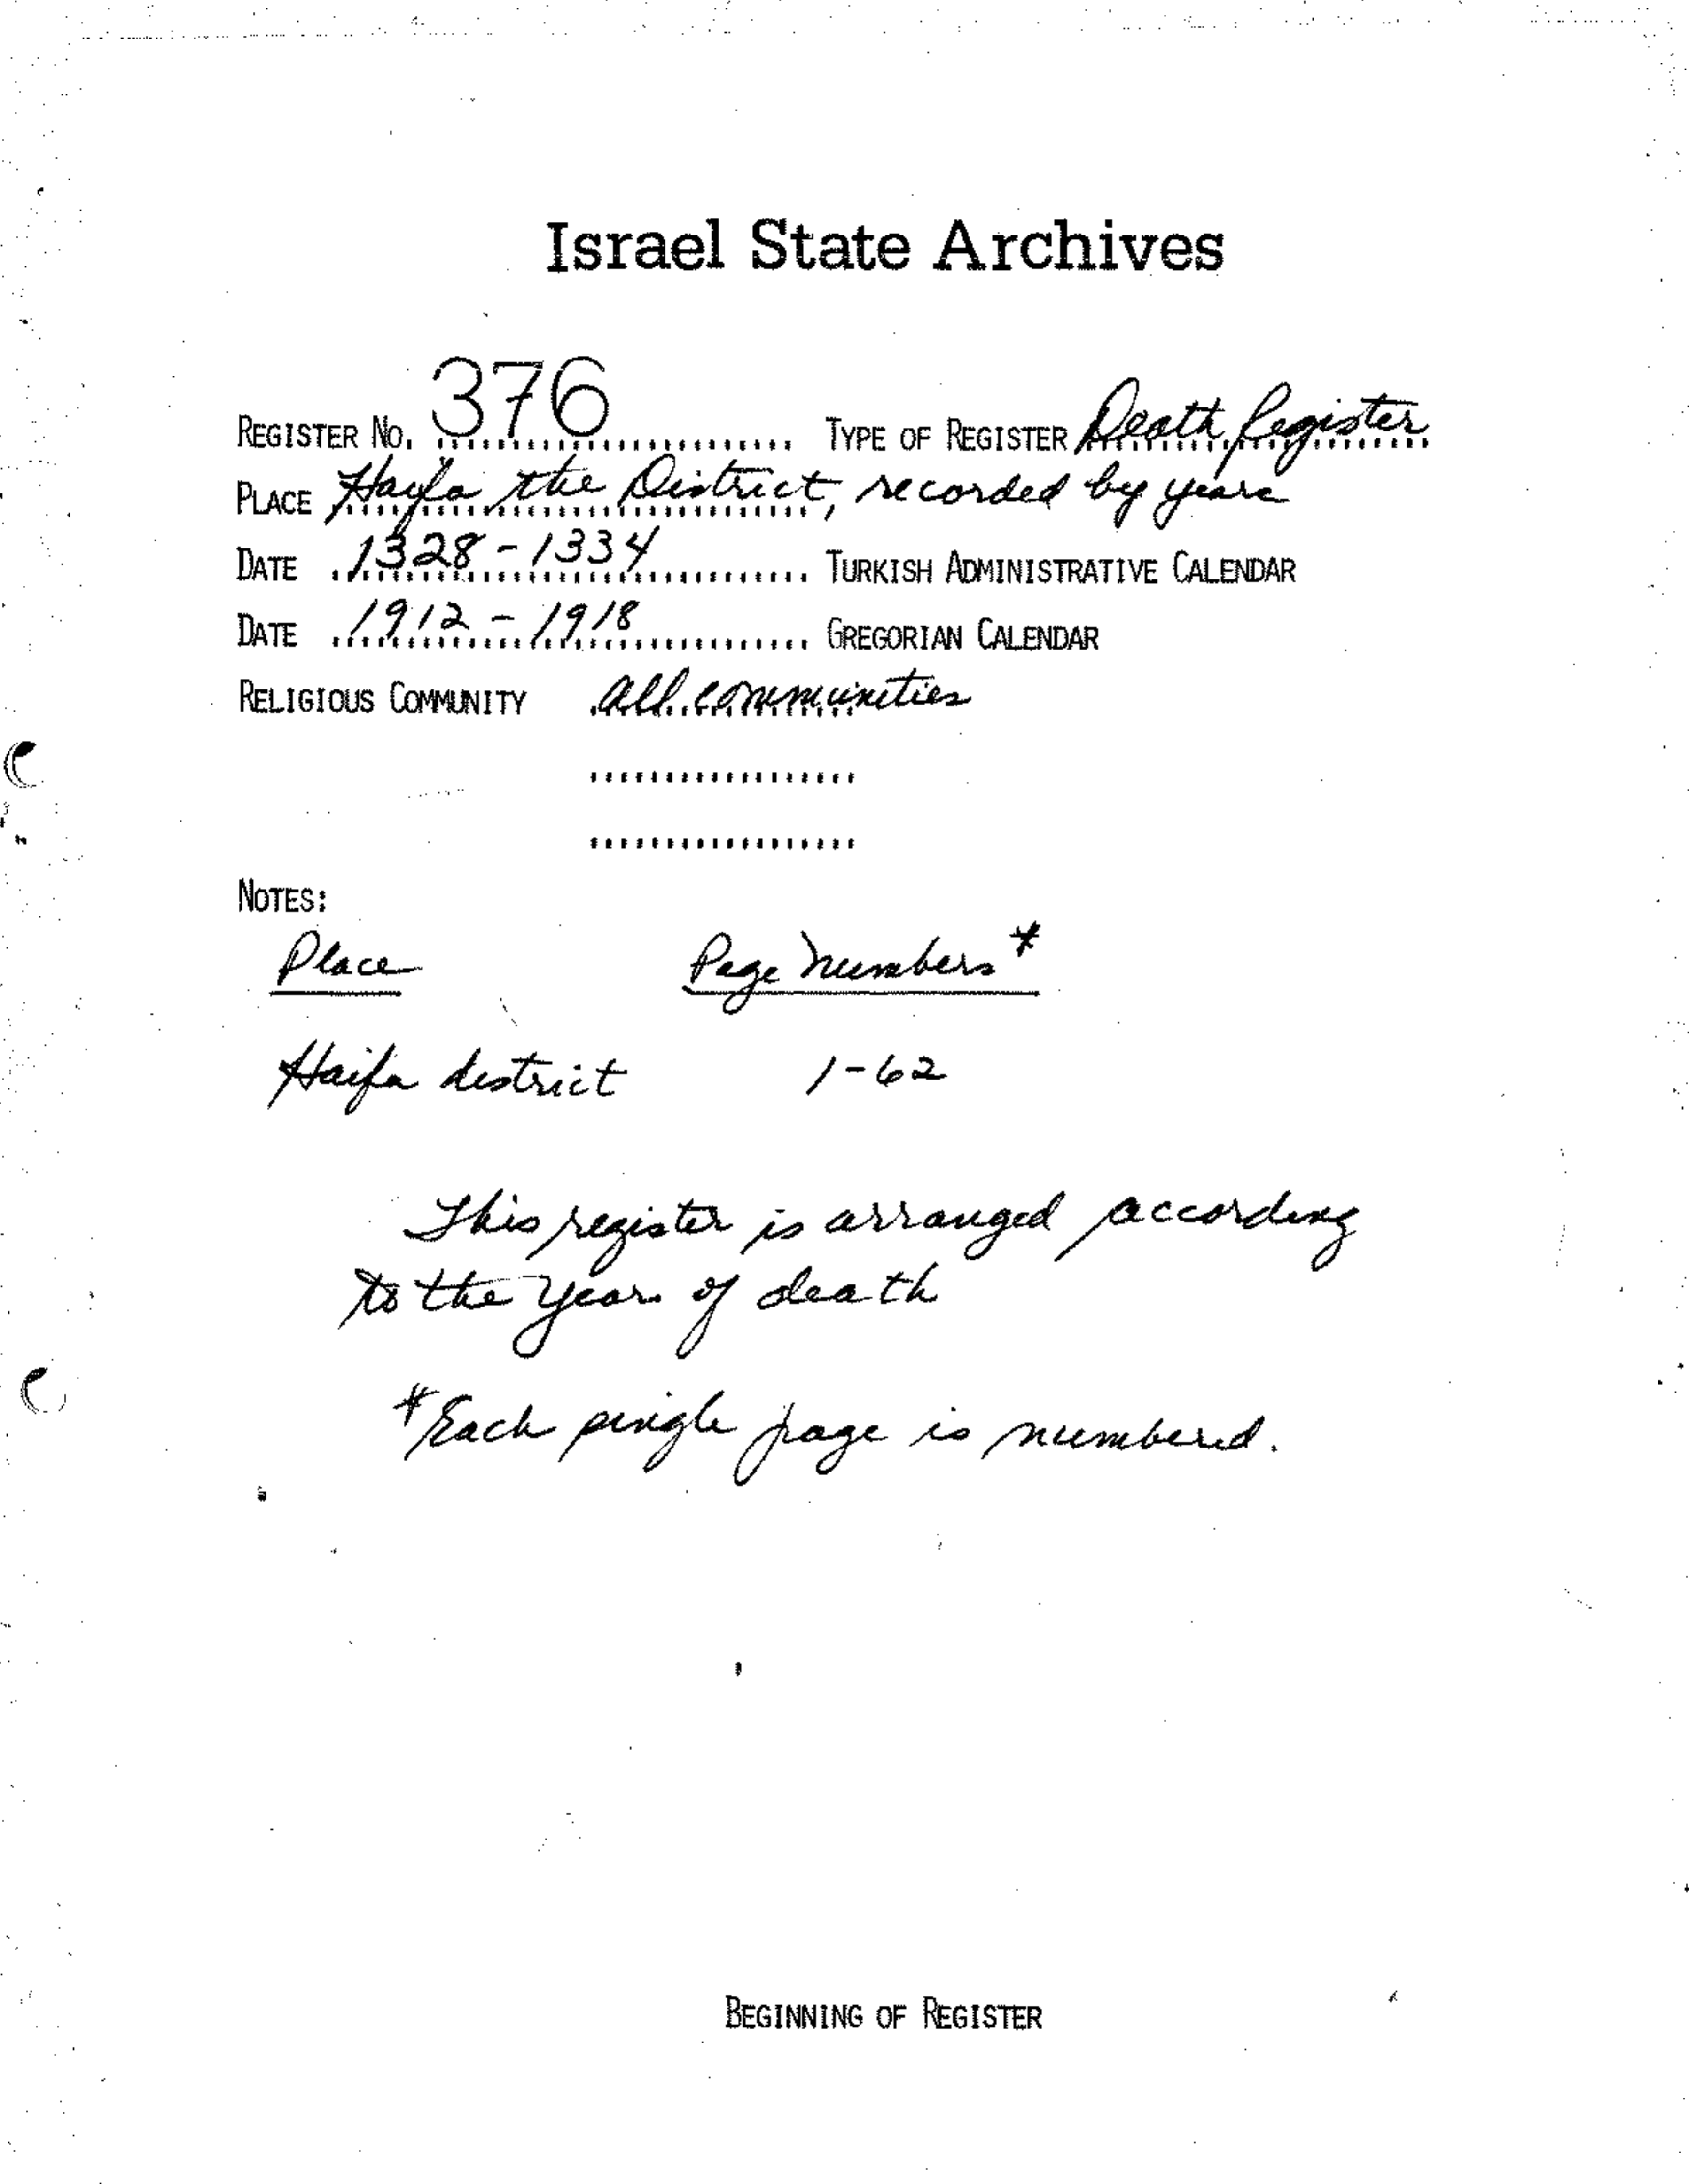 Israel State Archives
REGISTER NO. 376 TYPE OF REGISTER Death Register
PLACE Hayfa the District, recorded by years
DATE 1328-1334 TURKISH ADMINISTRATIVE CALENDAR
DATE 1912-1918 GREGORIAN CALENDAR
RELIGIOUS COMMUNITY all communities
NOTES:
Place Page Numbers *
Haifa district 1-62
This register is arranged according
to the year of death
* Each single page is numbered.
BEGINNING OF REGISTER